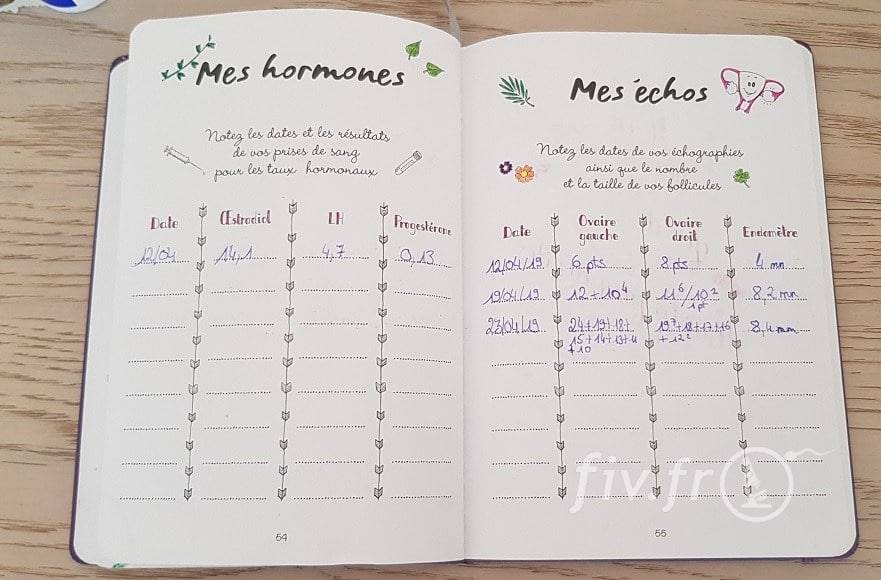 Mes hormones
Notez les dates et les résultats
de vos prises de sang
pour les taux hormonaux
Date Œstradiol LH Progestérone
12/04 14,1 4,7 0,13
54
Mes échos
Notez les dates de vos échographies
ainsi que le nombre
et la taille de vos follicules
Date Ovaire gauche Ovaire droit Endomètre
12/04/19 6 pts 8 pts 4 mm
19/04/19 12 + 10⁴ 11⁶/10² 8,2 mm
1 pt
23/04/19 24+19+18+ 19²+18+17+16 8,4 mm
15+14+13+11 +12²
+10
fiv.fr
55